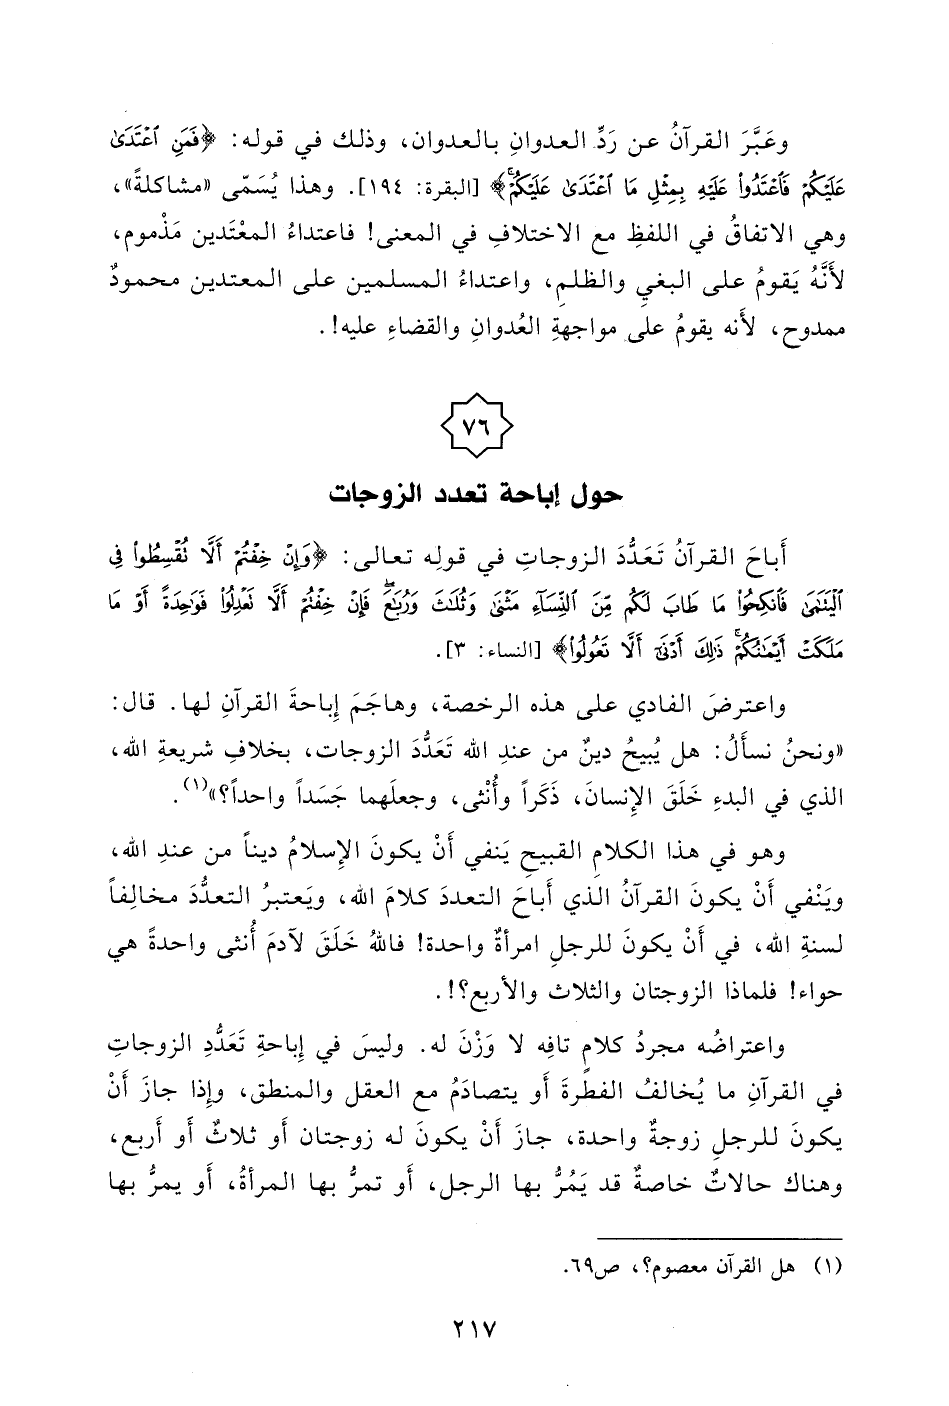 وعَبَّرَ القرآنُ عن رَدِّ العدوانِ بالعدوان، وذلك في قوله: ﴿فَمَنِ ٱعْتَدَىٰ
عَلَيْكُمْ فَٱعْتَدُوا۟ عَلَيْهِ بِمِثْلِ مَا ٱعْتَدَىٰ عَلَيْكُمْ ۚ﴾ [البقرة: ١٩٤]. وهذا يُسَمّى «مشاكلةً»،
وهي الاتفاقُ في اللفظِ مع الاختلافِ في المعنى! فاعتداءُ المعْتَدين مَذْموم،
لأَنَّهُ يَقومُ على البغيِ والظلمِ، واعتداءُ المسلمين على المعتدين محمودٌ
ممدوح، لأنه يقومُ على مواجهةِ العُدوانِ والقضاءِ عليه!.
٧٦
حول إباحة تعدد الزوجات
أَباحَ القرآنُ تَعَدُّدَ الزوجاتِ في قولِه تعالى: ﴿وَإِنْ خِفْتُمْ أَلَّا نُقْسِطُوا۟ فِى
ٱلْيَتَٰمَىٰ فَٱنكِحُوا۟ مَا طَابَ لَكُم مِّنَ ٱلنِّسَآءِ مَثْنَىٰ وَثُلَٰثَ وَرُبَٰعَ ۖ فَإِنْ خِفْتُمْ أَلَّا نَعْدِلُوا۟ فَوَٰحِدَةً أَوْ مَا
مَلَكَتْ أَيْمَٰنُكُمْ ۚ ذَٰلِكَ أَدْنَىٰٓ أَلَّا تَعُولُوا۟﴾ [النساء: ٣].
واعترضَ الفادي على هذه الرخصة، وهاجَمَ إِباحةَ القرآنِ لها. قال:
«ونحنُ نسأَلُ: هل يُبيحُ دينٌ من عندِ الله تَعَدُّدَ الزوجات، بخلافِ شريعةِ الله،
الذي في البدءِ خَلَقَ الإِنسانَ، ذَكَراً وأُنْثى، وجعلَهما جَسَداً واحداً؟»(١).
وهو في هذا الكلامِ القبيحِ يَنفي أَنْ يكونَ الإِسلامُ ديناً من عندِ الله،
ويَنْفي أَنْ يكونَ القرآنُ الذي أَباحَ التعددَ كلامَ الله، ويَعتبرُ التعدُّدَ مخالِفاً
لسنةِ الله، في أَنْ يكونَ للرجلِ امرأةٌ واحدة! فاللهُ خَلَقَ لآدمَ أُنثى واحدةً هي
حواء! فلماذا الزوجتان والثلاث والأربع؟!.
واعتراضُه مجردُ كلامٍ تافِه لا وَزْنَ له. وليسَ في إِباحةِ تَعَدُّدِ الزوجاتِ
في القرآنِ ما يُخالفُ الفطرةَ أَو يتصادَمُ مع العقل والمنطق، وإِذا جازَ أَنْ
يكونَ للرجلِ زوجةٌ واحدة، جازَ أَنْ يكونَ له زوجتان أَو ثلاثٌ أَو أربع،
وهناك حالاتٌ خاصةٌ قد يَمُرُّ بها الرجل، أَو تمرُّ بها المرأةُ، أَو يمرُّ بها
(١) هل القرآن معصوم؟، ص٦٩.
٢١٧